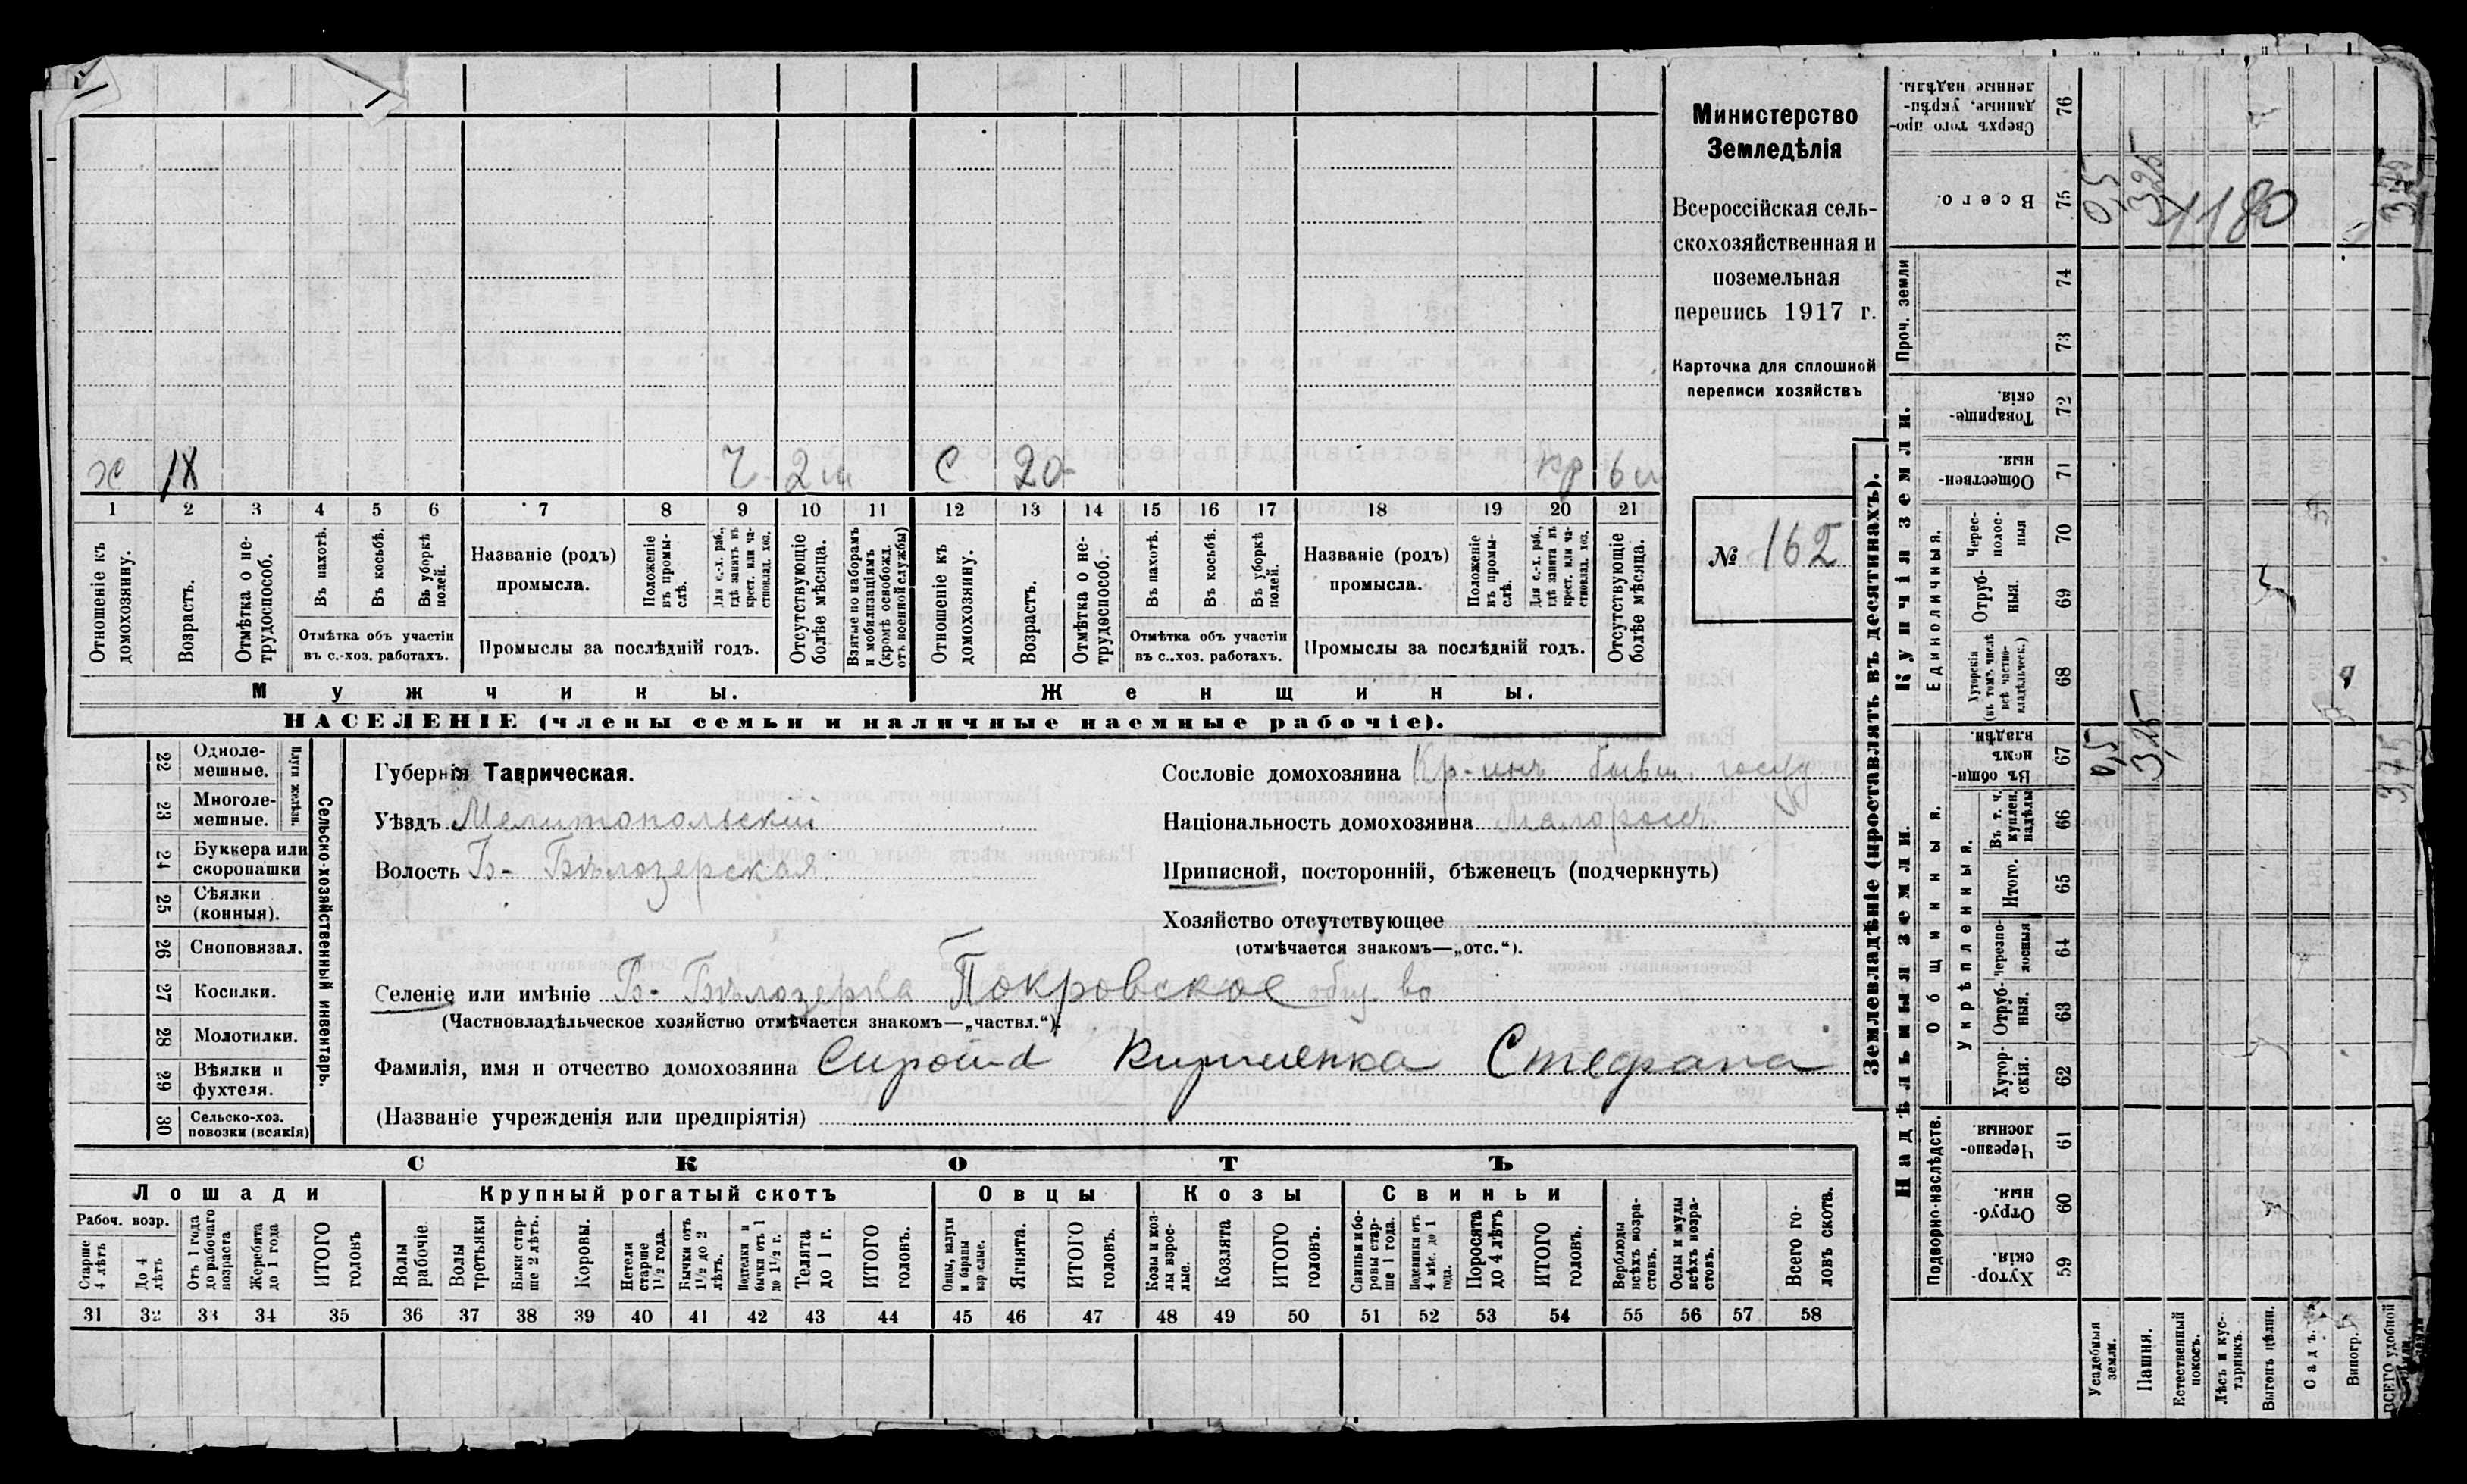 Министерство
Земледѣлія
Всероссійская сель-
скохозяйственная и
поземельная
перепись 1917 г.
Карточка для сплошной
переписи хозяйствъ
№ 162
х 18 2 м С 20 Кр 6 м
1 2 3 4 5 6 7 8 9 10 11 12 13 14 15 16 17 18 19 20 21
Отношеніе къ домохозяину.
Возрастъ.
Отмѣтка о не-трудоспособ.
Въ пахотѣ.
Въ косьбѣ.
Въ уборкѣ полей.
Отмѣтка объ участіи въ с.-хоз. работахъ.
Названіе (родъ) промысла.
Положеніе въ промы-слѣ.
Для с.-х. раб., гдѣ занятъ въ крест. или ча-стновлад. хоз.
Промыслы за послѣдній годъ.
Отсутствующіе болѣе мѣсяца.
Взятые по наборамъ и мобилизаціямъ (кромѣ освобожд. отъ военной службы)
Отношеніе къ домохозяину.
Возрастъ.
Отмѣтка о не-трудоспособ.
Въ пахотѣ.
Въ косьбѣ.
Въ уборкѣ полей.
Отмѣтка объ участіи въ с.-хоз. работахъ.
Названіе (родъ) промысла.
Положеніе въ промы-слѣ.
Для с.-х. раб., гдѣ занята въ крест. или ча-стновлад. хоз.
Промыслы за послѣдній годъ.
Отсутствующіе болѣе мѣсяца.
Мужчины. Женщины.
НАСЕЛЕНІЕ (члены семьи и наличные наемные рабочіе).
22 Одноле-мешные.
23 Многоле-мешные.
Плуги желѣзн.
24 Буккера или скоропашки
25 Сѣялки (конныя).
26 Сноповязал.
27 Косилки.
28 Молотилки.
29 Вѣялки и фухтеля.
30 Сельско-хоз. повозки (всякія)
Сельско-хозяйственный инвентарь.
Губернія Таврическая.
Уѣздъ Мелитопольскій
Волость Б- Бѣлозерская
Сословіе домохозяина Кр-инъ бывш. госуд
Національность домохозяина Малороссъ
Приписной, посторонній, бѣженецъ (подчеркнуть)
Хозяйство отсутствующее
(отмѣчается знакомъ—„отс.“).
Селеніе или имѣніе Б- Бѣлозерка Покровское общ. во
(Частновладѣльческое хозяйство отмѣчается знакомъ—„частвл.“).
Фамилія, имя и отчество домохозяина Стефана
(Названіе учрежденія или предпріятія)
СКОТЪ
Лошади Крупный рогатый скотъ Овцы Козы Свиньи
Рабоч. возр.
Старше 4 лѣтъ
До 4 лѣтъ
Отъ 1 года до рабочаго возраста
Жеребята до 1 года
ИТОГО головъ
Волы рабочіе
Волы третьяки
Быки стар-ше 2 лѣтъ.
Коровы.
Нетели старше 1½ года.
Бычки отъ 1½ до 2 лѣтъ.
Подтелки и бычки отъ 1 до 1½ г.
Телята до 1 г.
ИТОГО головъ.
Овцы, валухи и бараны взрослые.
Ягнята.
ИТОГО головъ.
Козы и коз-лы взрос-лые.
Козлята
ИТОГО головъ.
Свиньи и бо-ровы стар-ше 1 года.
Подсвинки отъ 4 мѣс. до 1 года.
Поросята до 4 лѣтъ
ИТОГО головъ.
Верблюды всѣхъ возра-стовъ.
Ослы и мулы всѣхъ возра-стовъ.
Всего го-ловъ скота.
31 32 33 34 35 36 37 38 39 40 41 42 43 44 45 46 47 48 49 50 51 52 53 54 55 56 57 58
Землевладѣніе (проставлять въ десятинахъ).
Надѣльныя земли. Купчія земли. Проч. земли
Подворно-наслѣдств. Общинныя. Укрѣпленныя. Единоличныя.
Сверхъ того про-данные, укрѣп-ленные надѣлы. 76
Всего. 75 0,5 3,25 1180 3,75
74
73
Товарище-скія. 72
Обществен-ныя. 71
Черес-полос-ныя 70
Отруб-ныя. 69
Хуторскія (въ томъ числѣ всѣ частно-владѣльческ.) 68
Въ общи-номъ владѣн. 67 0,5 3,25 3,75
Въ т. ч. куплен. надѣлы 66
Итого. 65
Черезпо-лосныя 64
Отруб-ныя. 63
Хутор-скія. 62
Черезпо-лосныя. 61
Отруб-ныя. 60
Хутор-скія. 59
Усадебныя земли.
Пашня.
Естественный покосъ.
Лѣсъ и кус-тарникъ.
Выгонъ цѣлин.
Садъ.
Виногр.
ВСЕГО удобной земли.